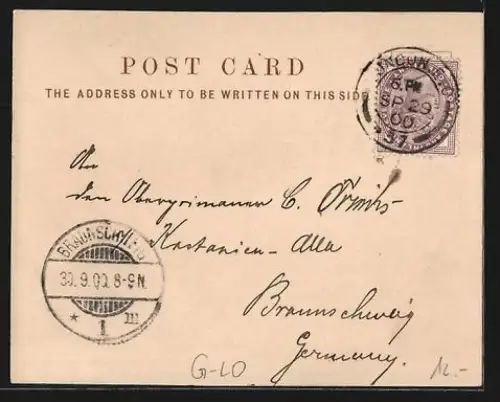 POST CARD
THE ADDRESS ONLY TO BE WRITTEN ON THIS SIDE
6. PM
SP 29
00
37
An
den Oberprimaner C.
Kastanien-Allee
Braunschweig
Germany.
BRAUNSCHWEIG
30.9.00.8-9N.
* 1 m
G-LO
12.-